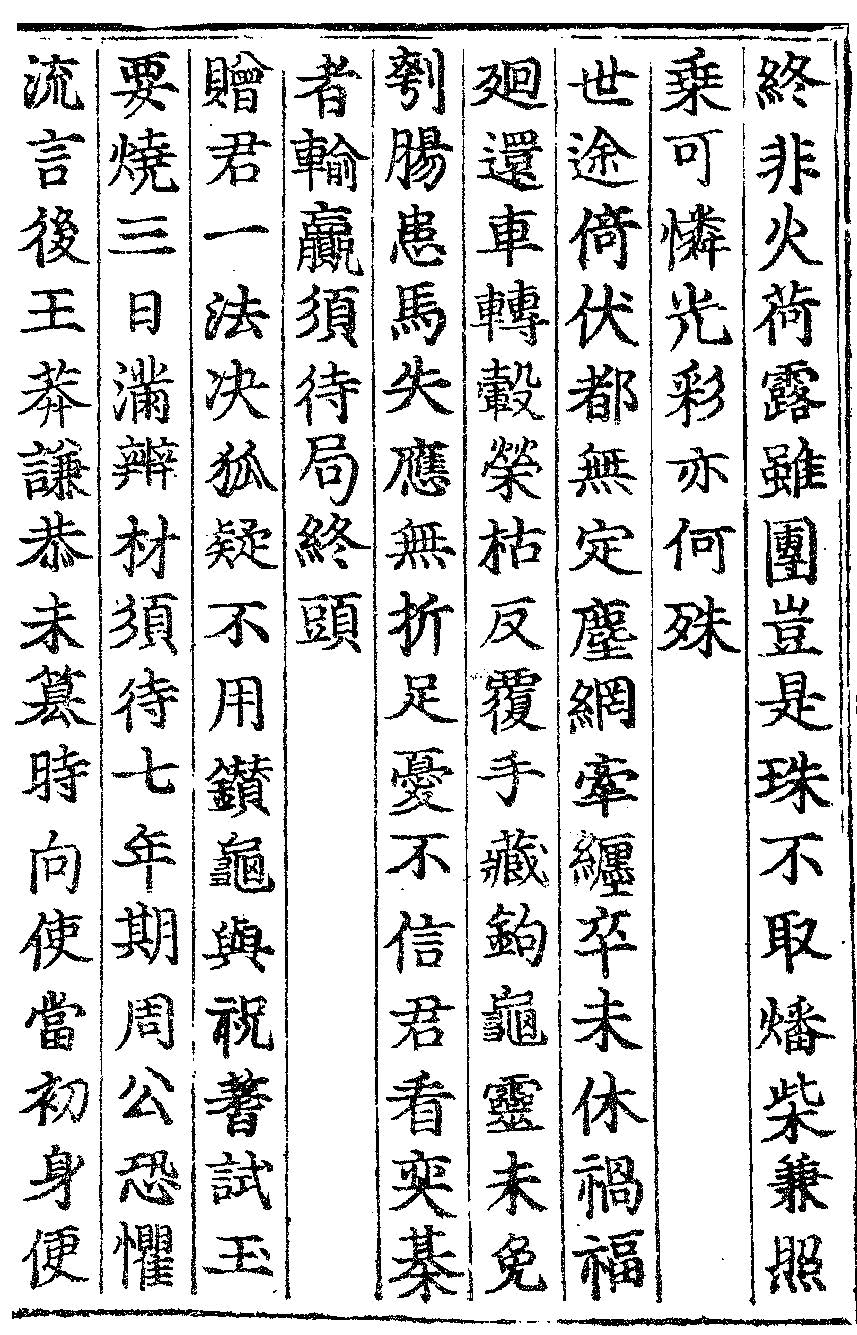 終非火荷露雖團豈是珠不取燔柴兼照
乗可憐光彩亦何殊
世途倚伏都無定塵網牽纏卒未休禍福
廻還車轉轂榮枯反覆手藏鉤龜靈未免
刳腸患馬失應無折足憂不信君看奕棊
者輸贏須待局終頭
贈君一法决狐疑不用鑽龜與祝蓍試玉
要燒三日滿辨材須待七年期周公恐懼
流言後王莽謙恭未篡時向使當初身便